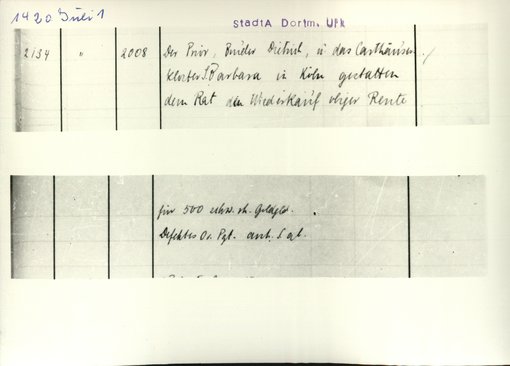 1420 Juli 1
StadtA Dortm. Urk
2134 " 2008 Der Prior, Bruder Dietrich, u das Carthäuser-
kloster S. Barbara in Köln gestatten
dem Rat den Wiederkauf obiger Rente
für 500 schw. rh. Goldgld.
Defektes Or. Pgt. anh. S. gt.